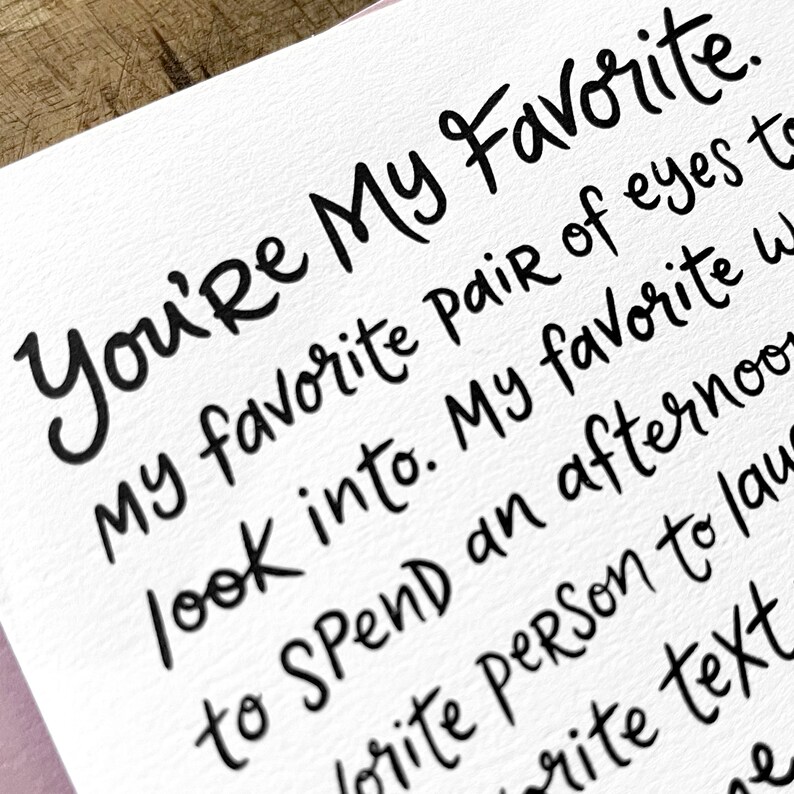 You're My Favorite.
My favorite pair of eyes to
look into. My favorite
to spend an afternoon
person to
text